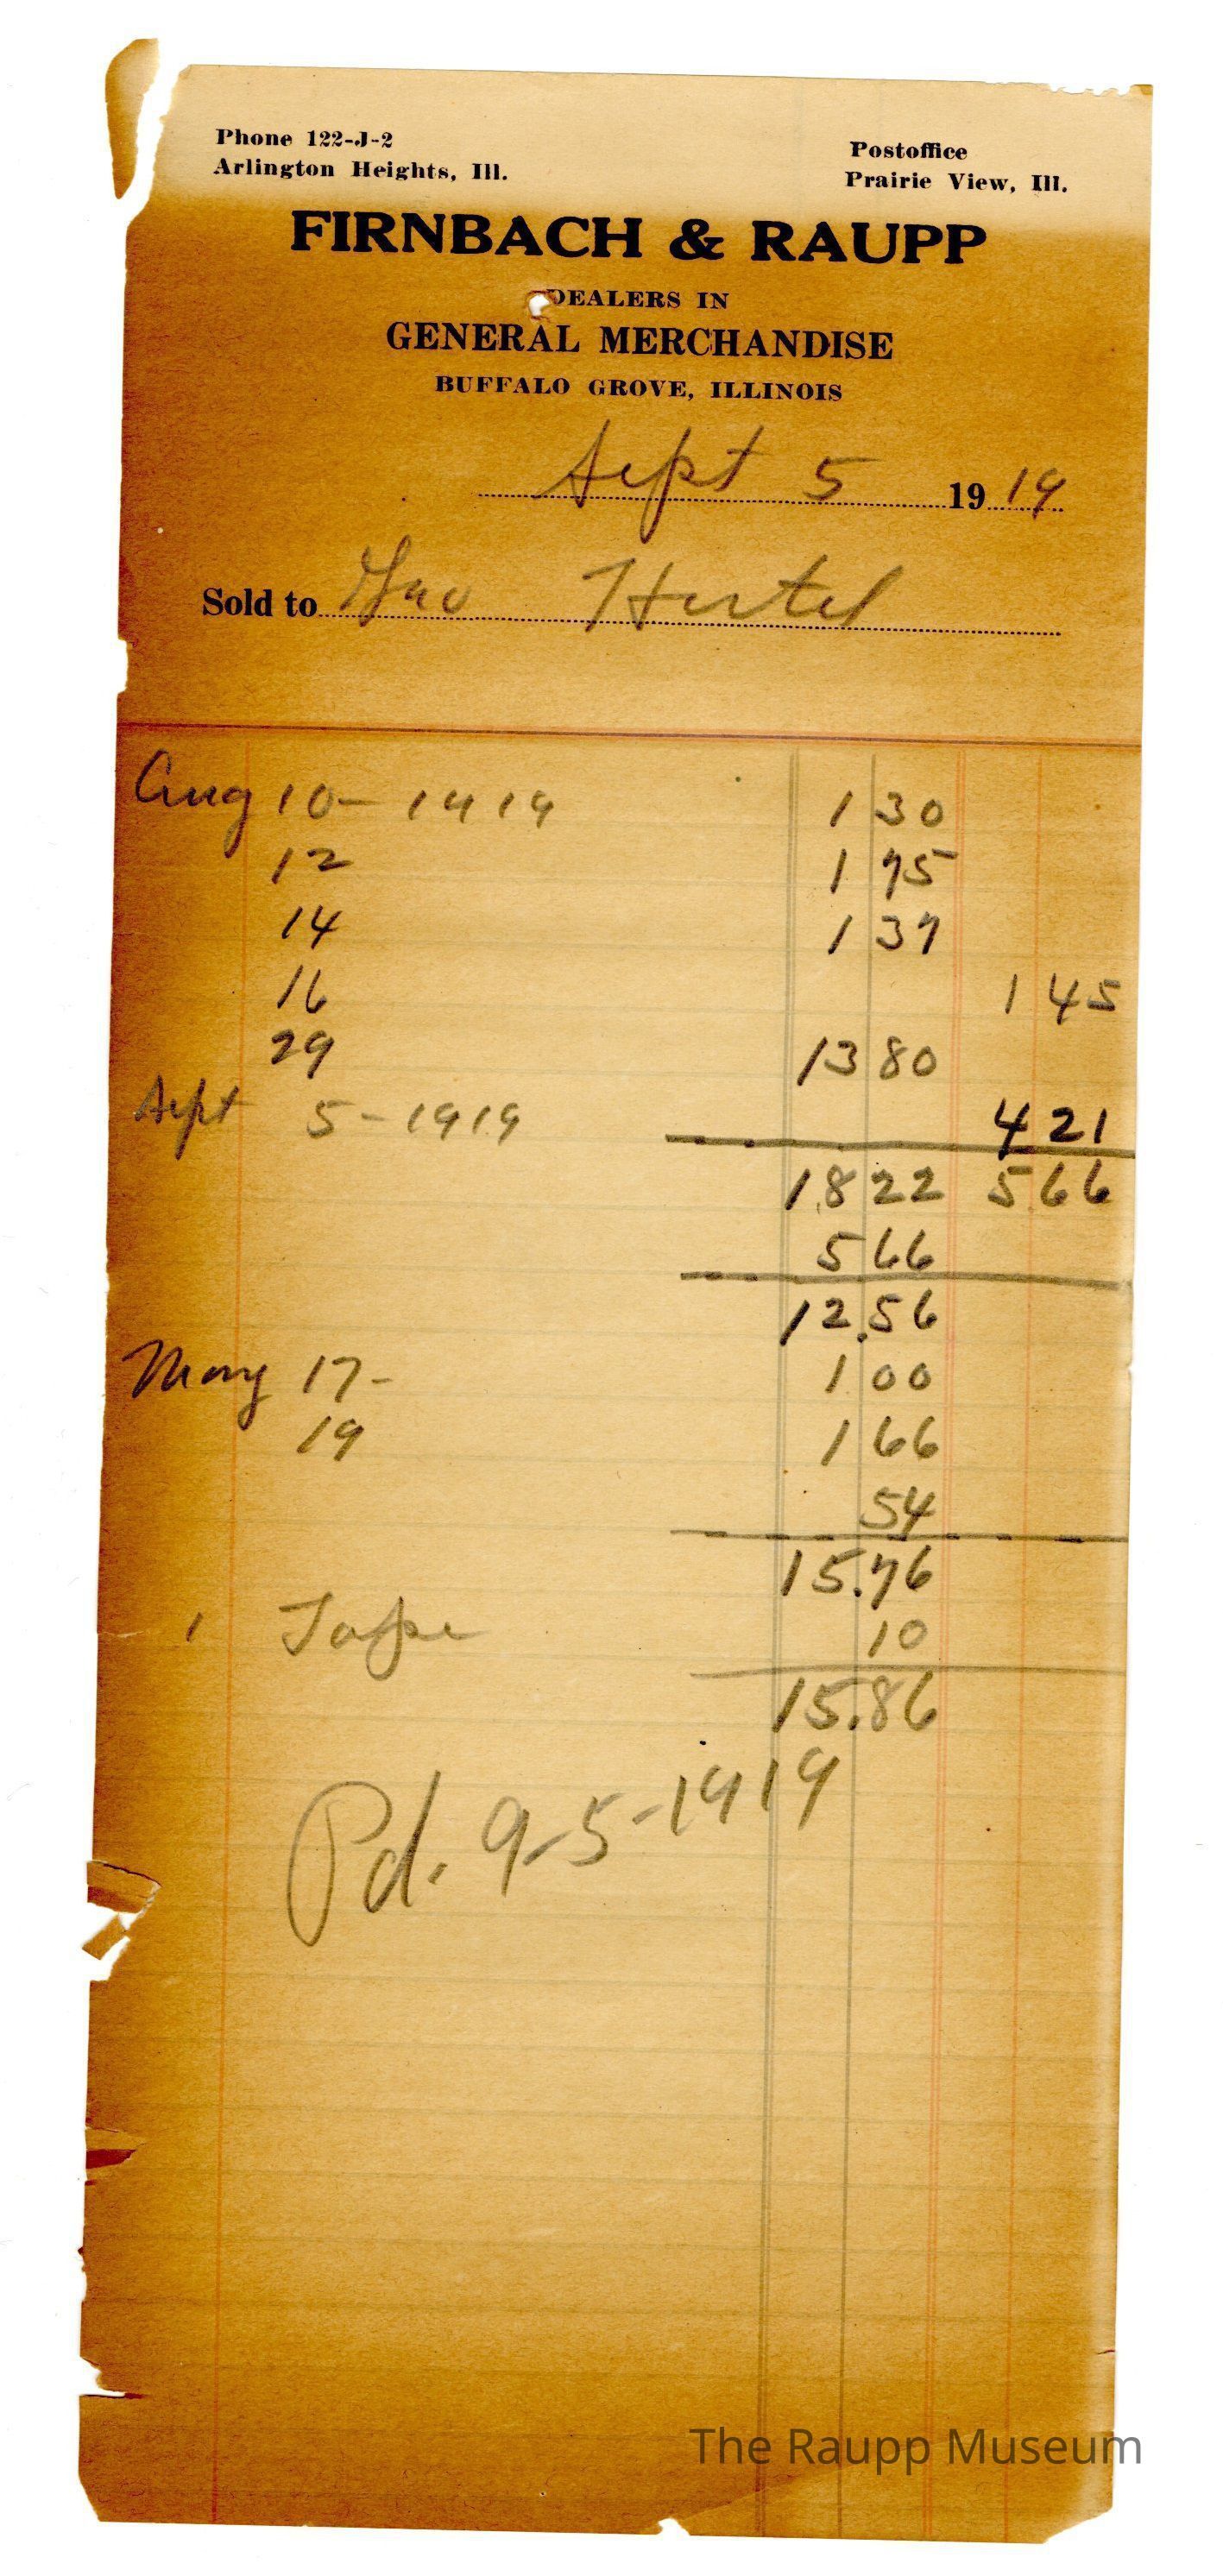 Phone 122-J-2
Arlington Heights, Ill.
Postoffice
Prairie View, Ill.
FIRNBACH & RAUPP
DEALERS IN
GENERAL MERCHANDISE
BUFFALO GROVE, ILLINOIS
Sept 5 1919
Sold to Geo Hertel
Aug 10 - 1919 1 30
12 1 75
14 1 37
16 1 45
29 13 80
Sept 5 - 1919 4 21
18 22 5 66
5 66
12.56
May 17 - 1 00
19 1 66
54
15.76
1 Tape 10
15.86
Pd. 9-5-1919
The Raupp Museum